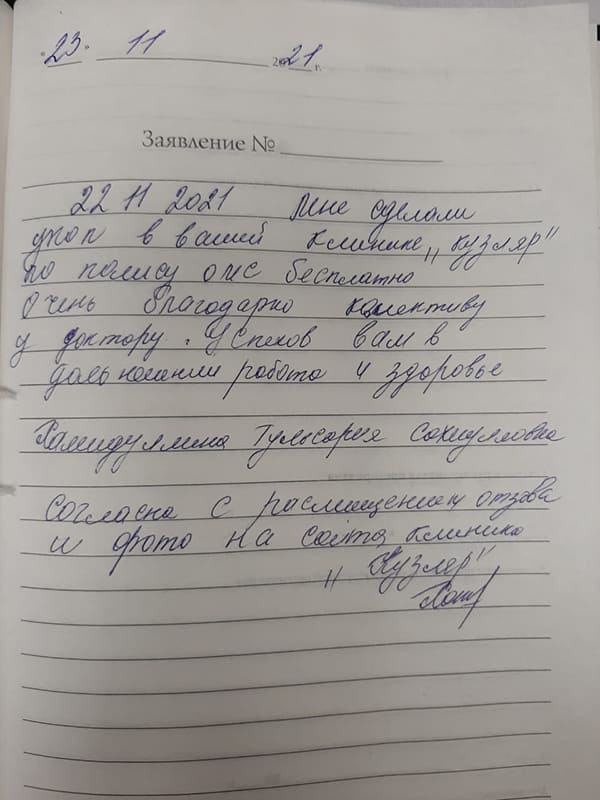 "23" 11 2021 г.
Заявление №
22 11 2021 Мне сделали
укол в вашей клинике „Кузляр"
по полису омс бесплатно
Очень благодарно колективу
у доктору. Успехов вам в
дальнешии работа и здоровье
Хамидуллина Гульсария
Согласна с расмищением отзова
и фото на сайта клинико
„Кузляр"